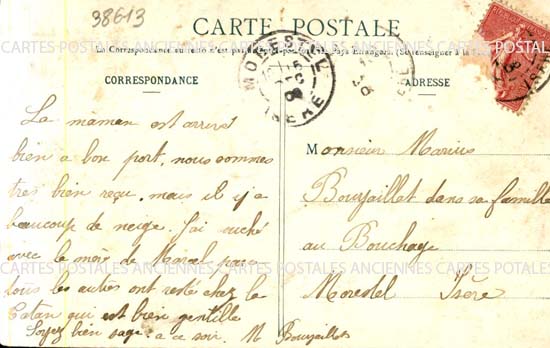 38613
CARTE POSTALE
La Correspondance au recto n'est pas acceptée par tous les Pays Etrangers. (Se renseigner à la
CORRESPONDANCE
ADRESSE
MORESTEL
ISERE
La maman est arrivet
bien a bon port, nous sommes
tres bien reçu. mais il y a
beaucoup de neige. J'ai
avec le mère de Marcel
tous les autres ont resté chez le
qui est bien gentille
Soyez bien sage. a ce soir. M Bouzaillet
Monsieur Marius
Bouzaillet dans sa famille
au Bouchage
Morestel Isère
CARTES POSTALES ANCIENNES CARTES POSTALES ANCIENNES CARTES POTALES